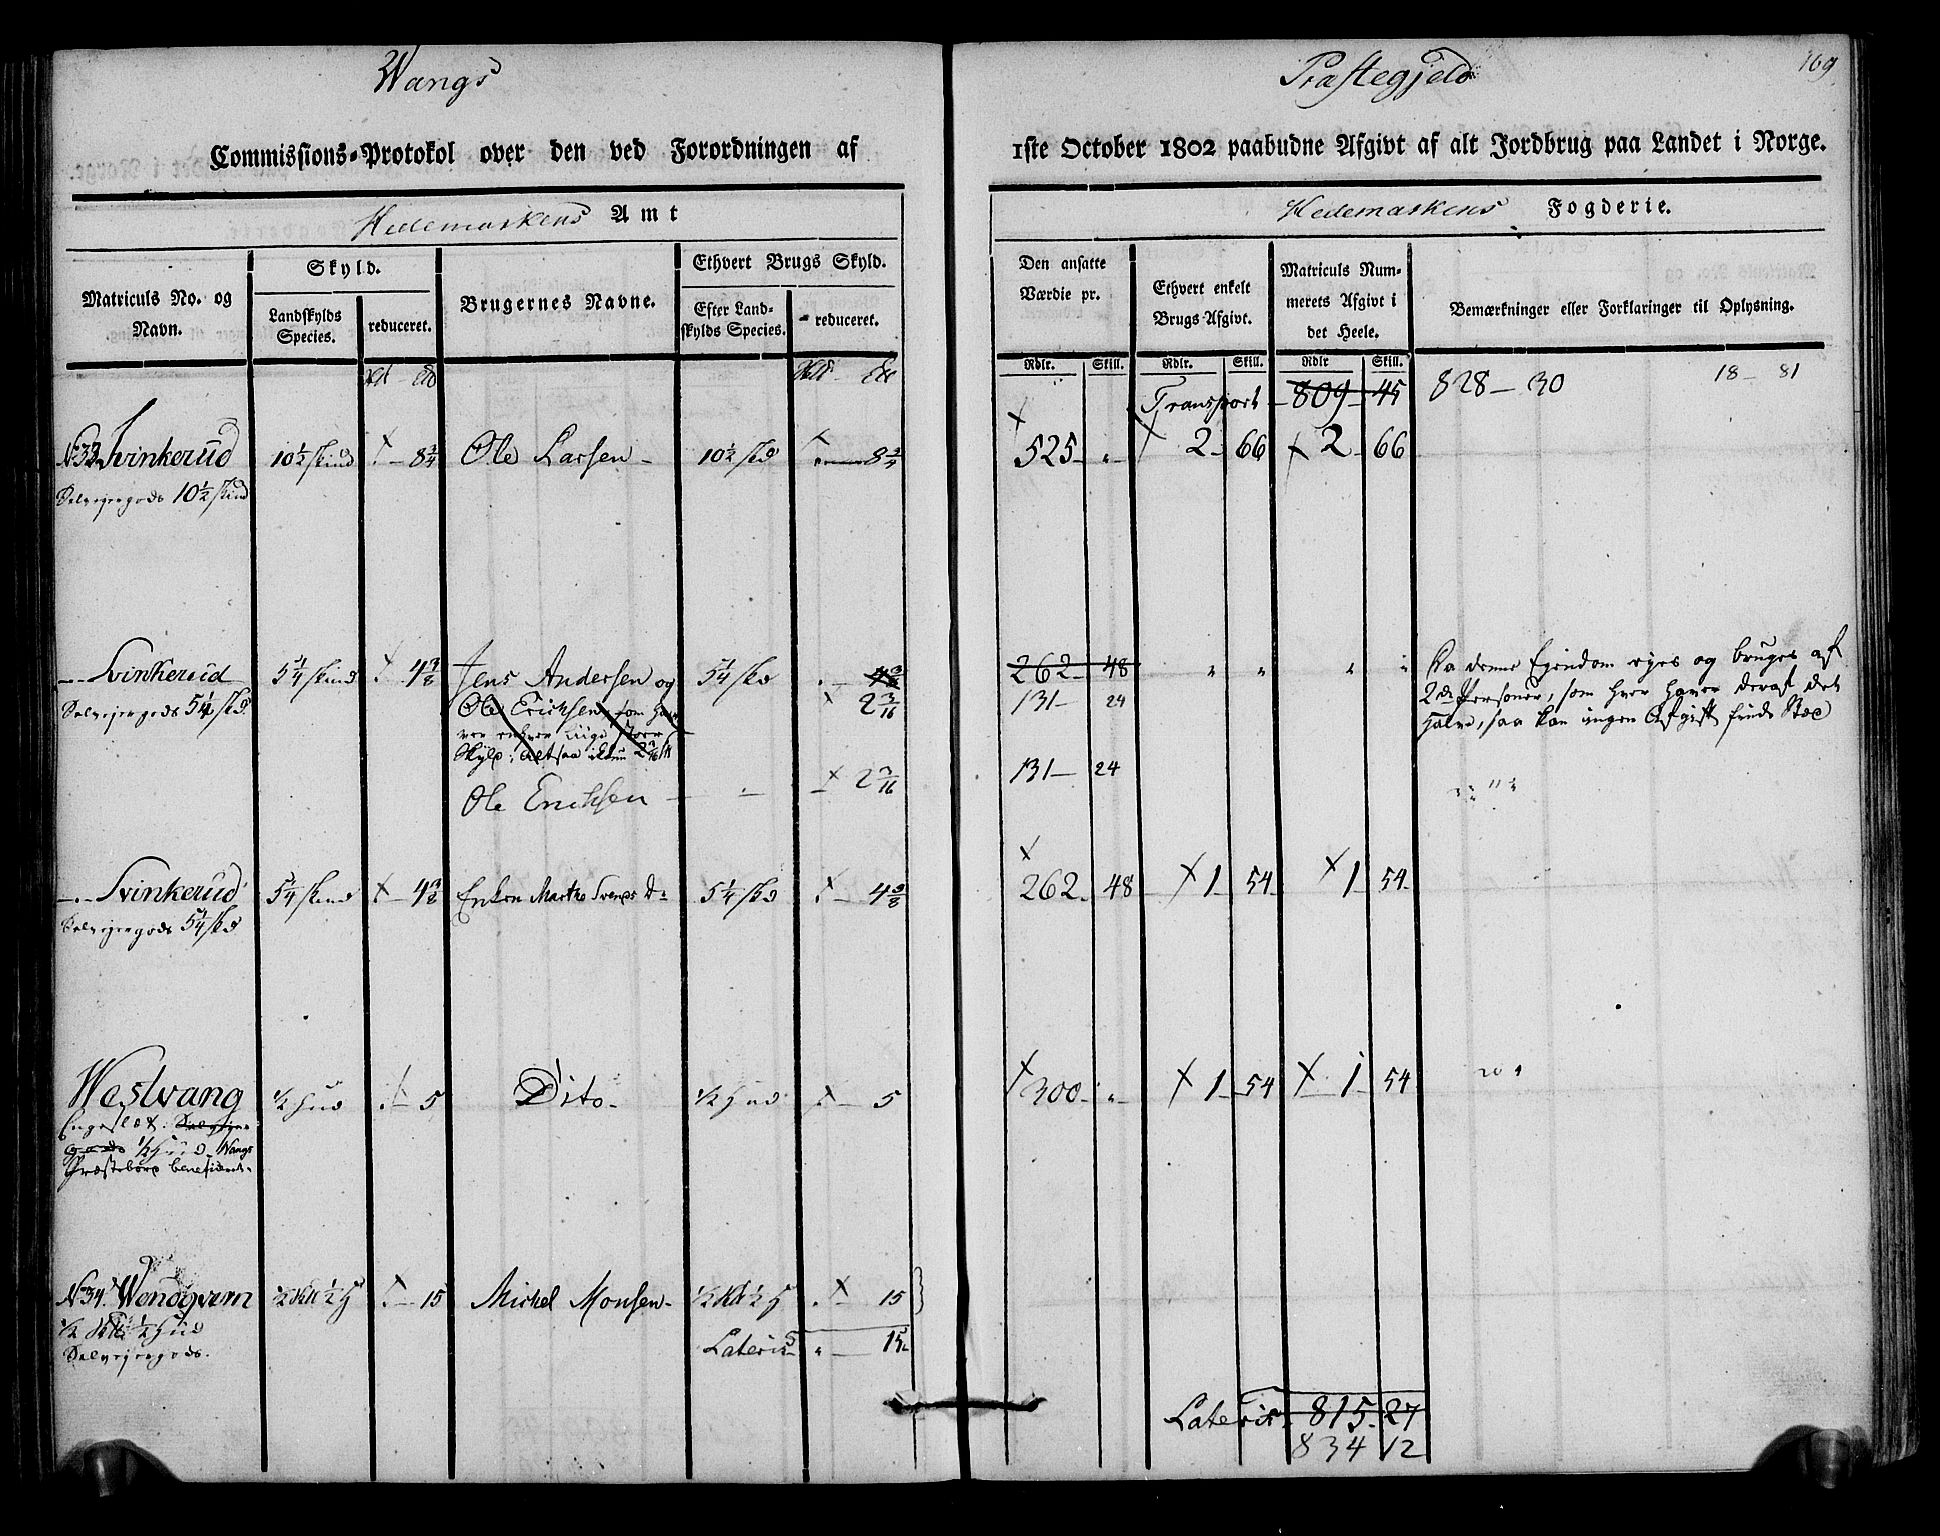 Wangs
Commissions-Protokol over den ved Forordningen af
Hedemarkens Amt
Matriculs No. og Navn.
Skyld.
Landskylds Species.
reduceret.
Brugernes Navne.
Ethvert Brugs Skyld.
Efter Landskylds Species.
reduceret.
No 33 Svinkerud 10½ skind 8¾ Ole Larsen 10½ skd 8¾
Selvejergods 10½ skind
Svinkerud 5¼ skind 4⅜ Jens Andersen og 5¼ skd 4⅜
Selvejergods 5¼ skd. Ole Erichsen som ha 2 3/16
Skyld: altsaa 2 3/16
Ole Erichsen 2 3/16
Svinkerud 5¼ skind 4⅜ Enken Marthe Svends D. 5¼ skd 4⅜
Selvejergods 5¼ skd
Westvang ½ hud 5 Dito ½ hud 5
Engeslet. Selvejer
gods ½ hud. Wangs
Præstebord beneficeret.
No 34. Wendqvern ½ ½ h 15 Michel Monsen ½ ½ h 15
½ ½ hud
Selvejergods.
Lateris 15
Præstegjeld
169
1ste October 1802 paabudne Afgivt af alt Jordbrug paa Landet i Norge.
Hedemarkens Fogderie.
Den ansatte Værdie pr.
Ethvert enkelt Brugs Afgivt.
Matriculs Nummerets Afgivt i det Heele.
Bemærkninger eller Forklaringer til Oplysning.
Rdlr. Skill. Rdlr. Skill. Rdlr Skill.
Transport 809 45 828 30 18 81
525 " 2 66 2 66
262 48 " " " " Da denne Ejendom ejes og bruges af
131 24 2de Personer, som hver haver deraf det
halve, saa kan ingen Afgift finde Sted
131 24
262 48 1 54 1 54
300 " 1 54 1 54
Lateris 815 27
834 12